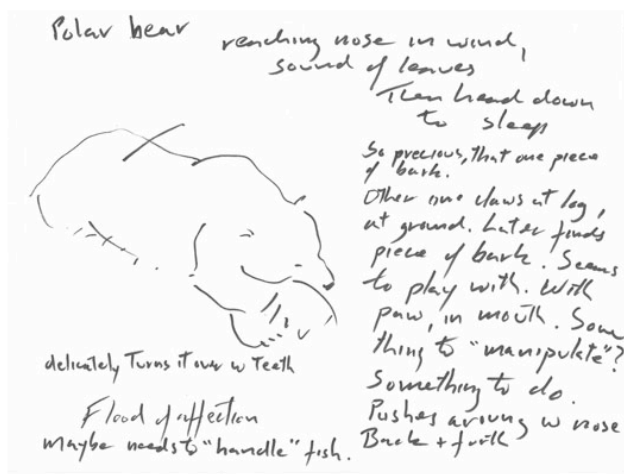 Polar bear
reaching nose in wind,
sound of leaves
Then head down
to sleep
So precious, that one piece
of bark.
Other one claws at log,
at ground. Later finds
piece of bark. Seems
to play with. With
paw, in mouth. Some
thing to "manipulate"?
Something to do.
Pushes around w nose
Back + forth
delicately Turns it over w Teeth
Flood of affection
maybe needs to "handle" fish.